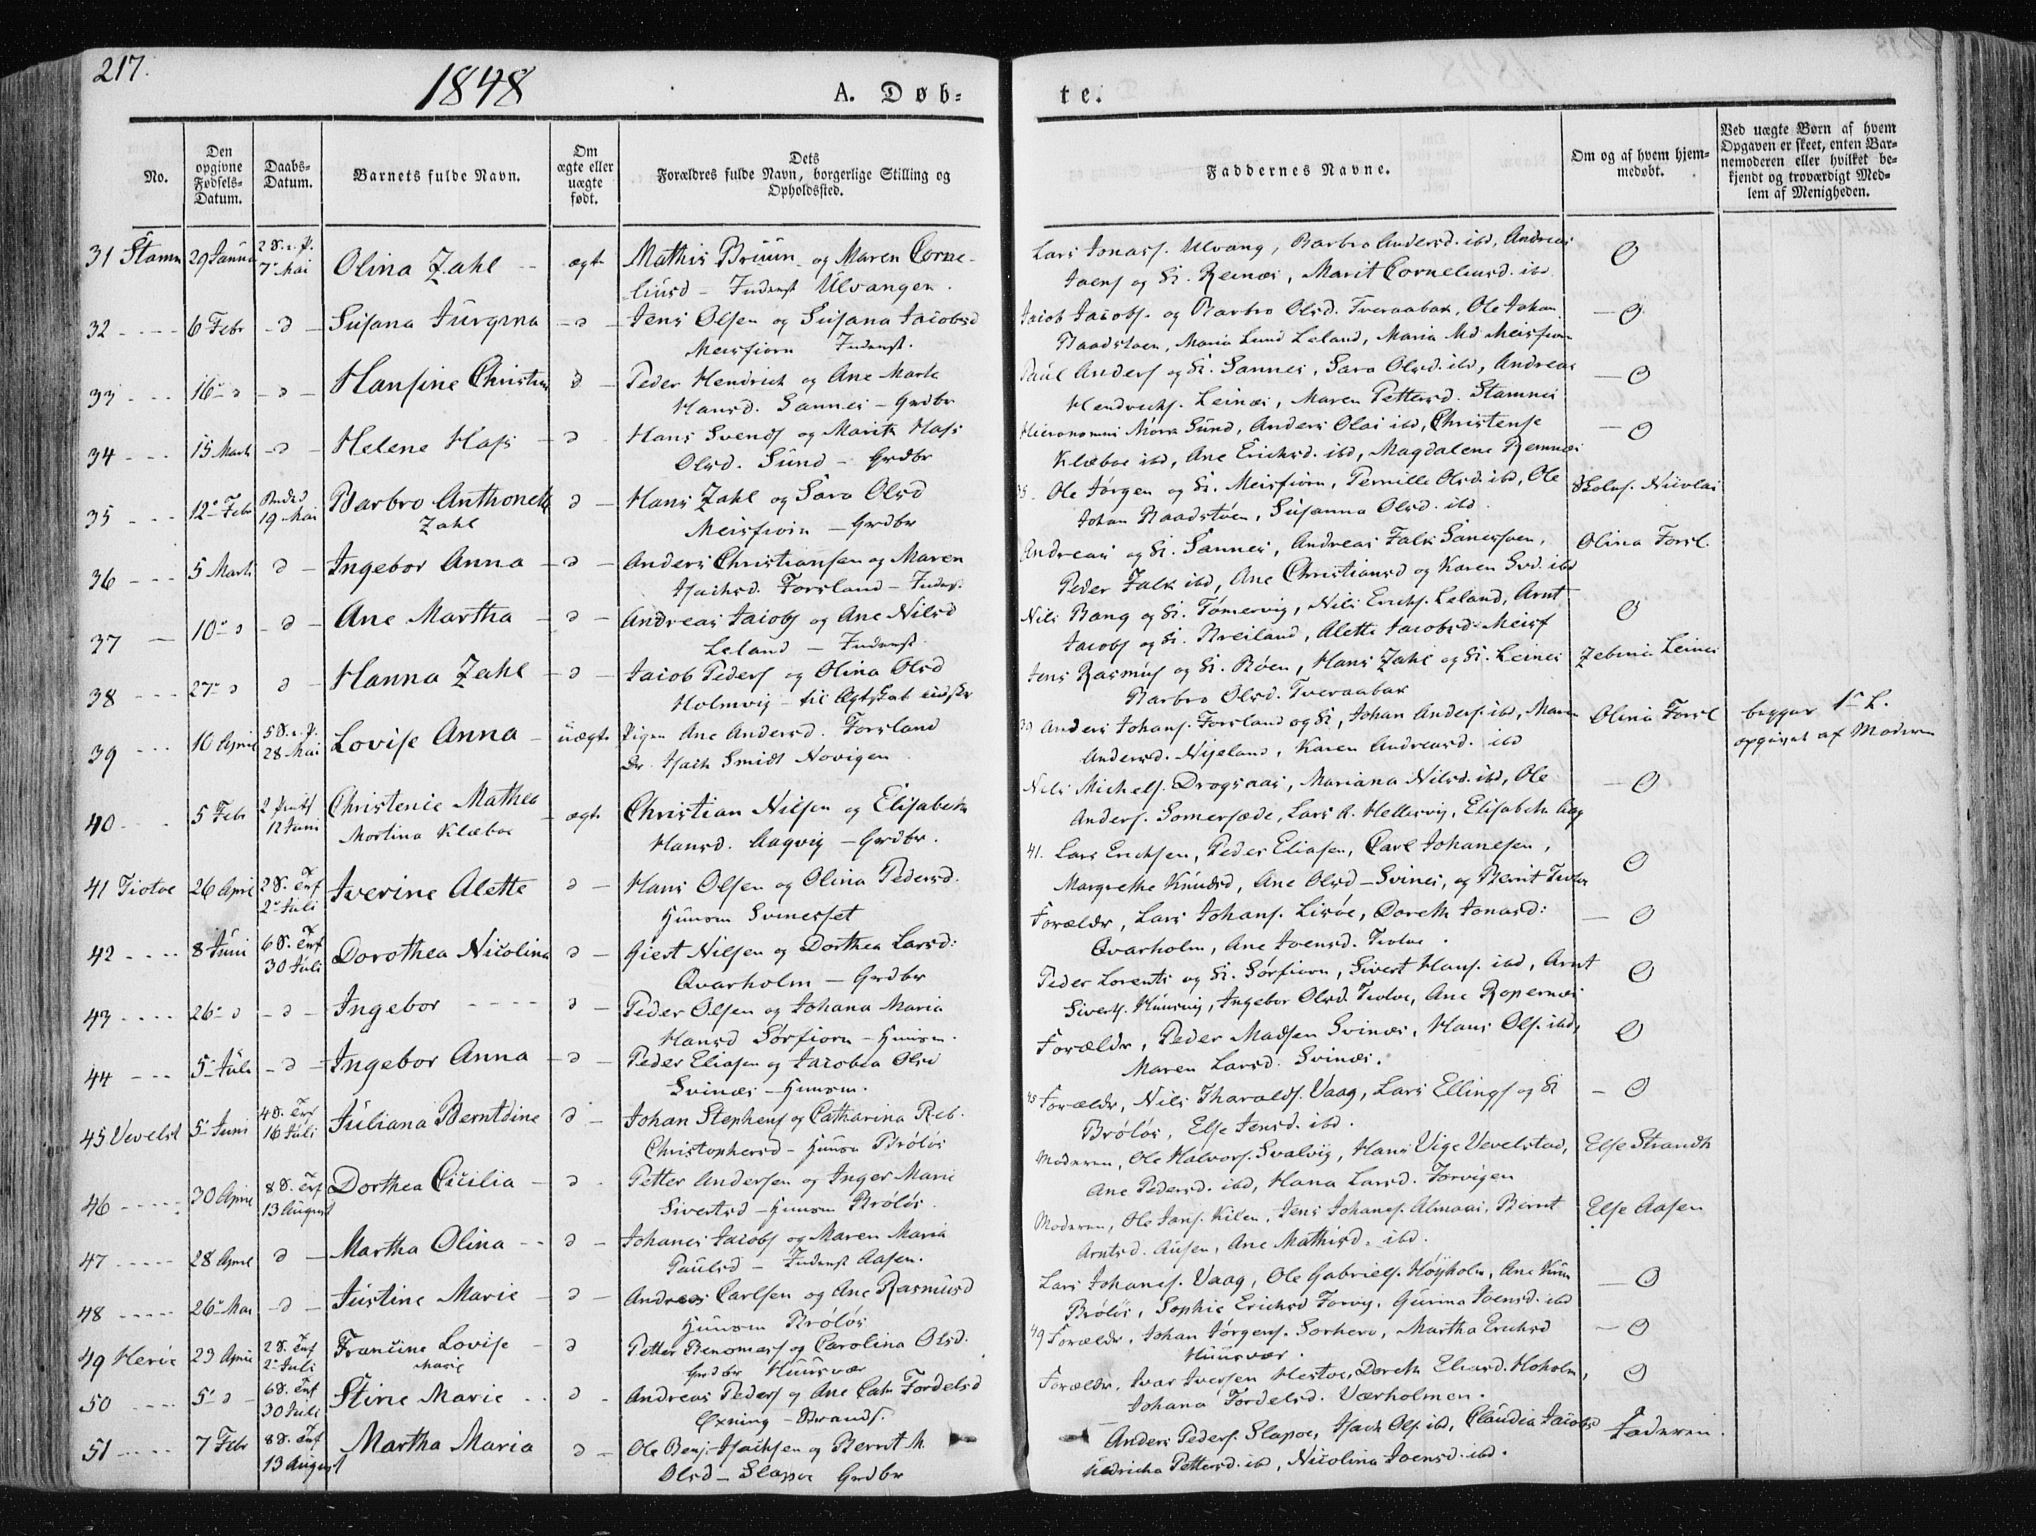 217.
1848
A. Døb=
te.
No.
Den opgivne Fødsels-Datum.
Daabs-Datum.
Barnets fulde Navn.
Om ægte eller uægte født.
Dets Forældres fulde Navn, borgerlige Stilling og Opholdssted.
Faddernes Navne.
Om og af hvem hjemmedøbt.
Ved uægte Børn af hvem Opgaven er skeet, enten Barnemoderen eller hvilket bekjendt og troværdigt Medlem af Menigheden.
31 Stamn 29 Janu 7 Mai Olina Zahl ægt Mathis Bruun og Maren Corne-
liusd - Inderst Ulvangen.
Lars Jonass. Ulvang, Barbro Andersd. ibd, Andreas
Joens og Reinæs, Marit Corneliusd. ibd. O
32 6 Febr d Susana Jürgina d Jens Olsen og Susana Jacobsd
Meisfiorn Inderst.
Jacob Jacobs. og Barbro Olsd. Tveraabak, Ole Johan
Baadstoen, Maria Lund Leland, Maria Md Meisfiorn O
33 16 d d Hansine Christin d Peder Hendrich og Ane Marte
Hansd. Sannes - Grdbr
Paul Anders og Sannes, Sara Olsd. ibd, Andreas
Hendrichs. Leines, Maren Pettersd. Stamnes O
34 15 Mart d Helene Hass d Hans Svends og Marith Hass
Olsd. Sund - Grdbr
Hieronomus Mora Sund, Anders Olai ibd, Christense
Klæboe ibd, Ane Erichsd. ibd, Magdalene Remnæs O
35 12 Febr 19 Mai Barbro Anthonette d Hans Zahl og Sara Olsd
Zahl Meisfiorn - Grdbr
Ole Jørgen og Meisfiorn, Pernille Olsd. ibd, Ole
Johan Baadstøen, Susanna Olsd. ibd. Nicolai
36 5 Marts d Ingebor Anna d Anders Christiansen og Maren
Isachsd. Forsland - Inderst
Andreas og Sannes, Andreas Falk
Peder Falk ibd, Ane Christiansd og Karen ibd Olina Forsl.
37 10 d d Ane Martha d Andreas Jacobs og Ane Nilsd
Leland - Inderst
Nils Bang og Tømervig, Nils Erichs. Leland, Arnt
Jacobs og Breiland, Alette Jacobsd. Meisf O
38 27 d d Hanna Zahl d Jacob Peders og Olina Olsd
Holmvig - til Ægteskab
Jens Rasmus og Bøen, Hans Zahl og Leines
Barbro Olsd. Tveraabak Zebina Leines
39 10 April 28 Mai Lovise Anna uægte Pigen Ane Andersd. Forsland
Isach Smidt Novigen
Anders Johans. Forsland og, Johan Anders. ibd, Maren
Andersd. Nyeland, Karen Andreasd. ibd Olina Forsl begges 1 L.
opgivet af Moderen
40 5 Febr 12 Juni Christenie Mathea ægt Christian Nilsen og Elisabeth
Martina Klæboe Hansd. Aagvig - Grdbr.
Nils Michels. Drogsaas, Mariana Nilsd. ibd, Ole
Anders. Somersæde, Lars A. Hellesvig, Elisabeth Aag O
41 Tiotoe 26 April 2 Juli Iverine Alette d Hans Olsen og Olina Pedersd.
Huusm Svinesset
41. Lars Erichsen, Peder Eliasen, Carl Johanesen,
Margrethe Knudsd, Ane Olsd - Svines, og Bernt Tiotoe O
42 8 Juni 30 Juli Dorothea Nicolina d Giert Nilsen og Dorthea Larsd:
Qvarholm - Grdbr
Forældr, Lars Johans. Lisøe, Doreth Jonasd:
Qvarholm, Ane Joensd. Tiotoe. O
43 26 d d Ingebor d Peder Olsen og Johana Maria
Hansd Sørfiorn - Huusm.
Peder Lorents og Sørfiorn, Sivert Hans. ibd, Arnt
Siverts. Huusvig, Ingebor Olsd. Tiotoe, Ane Ropernæs O
44 5 Juli d Ingebor Anna d Peder Eliasen og Jacobea Olsd
Svinæs - Huusm.
Forældr, Peder Madsen Svinæs, Hans Ols. ibd,
Maren Larsd. Svinæs. O
45 Vevelst 5 Juni 16 Juli Juliana Berntdine d Johan Stephens og Catharina Reb.
Christophersd - Huusm Brøløs
Forældr, Nils Tharalds. Vaag, Lars Ellings og
Brøløs, Else Jensd. ibd. O
46 30 April 13 August Dorthea Cicilia d Petter Andersen og Inger Marie
Sivertsd - Huusm Brøløs.
Moderen, Ole Halvors. Svalvig, Hans Vige Vevelstad,
Ane Pedersd. ibd, Hana Larsd. Forvigen Else Strandt
47 28 April d Martha Olina d Johanes Jacobs og Maren Maria
Paulsd - Inderst Aasen.
Moderen, Ole Jans. Kilen, Jens Johanes. Almaas, Bernt
Arntsd. Ausen, Ane Mathisd. ibd. Else Aasen
48 26 Mai d Justine Marie d Andreas Carlsen og Ane Rasmusd
Huusm Brøløs
Lars Johanes. Vaag, Ole Gabriels. Høyholm, Ane
Brøløs, Sophie Erichsd Forvig, Gurina Joensd. ibd O
49 Herøe 23 April 2 Juli Francine Lovise d Petter Benomass og Carolina Olsd.
Marie Grdbr Huusvær
49 Forældr, Johan Jørgens. Sorhero, Martha Erichsd
Huusvær. O
50 5 d 30 Juli Stine Marie d Andreas Peders og Ane Cath Fordelsd
Oxning - Strands.
Forældr, Ivar Iversen Hestoe, Doreth Eliasd. Hoholm,
Johana Fordelsd. Værholmen. O
51 7 Febr 13 August Martha Maria d Ole Benj. Isachsen og Berrit M.
Olsd - Slapoe Grdbr
Anders Peders. Slapoe, Isach Ols. ibd, Claudia Jacobs
Pettersd. ibd, Nicolina Joensd. ibd. Faderen.